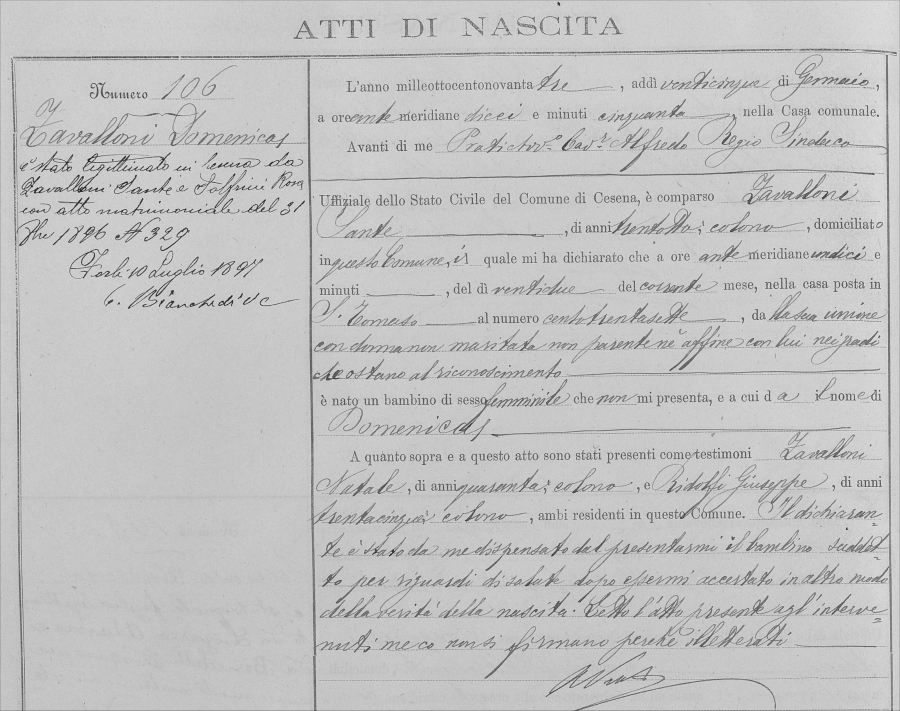 ATTI DI NASCITA
Numero 106
Zavalloni Domenica
è stato legittimato in Cesena da
Zavalloni Sante e Solfrini Rosa
con atto matrimoniale del 31
1896 N 329
Forlì 10 Luglio 1897
L'anno milleottocentonovantatre, addì venticinque di Gennaio,
a ore antemeridiane dieci e minuti cinquanta nella Casa comunale.
Avanti di me Cav.r Alfredo Regio Sindaco
Uffiziale dello Stato Civile del Comune di Cesena, è comparso Zavalloni
Sante, di anni trentotto, colono, domiciliato
in questo Comune, il quale mi ha dichiarato che a ore antemeridiane undici e
minuti , del dì ventidue del corrente mese, nella casa posta in
S. Tomaso al numero centotrentasette, dalla sua unione
con donna non maritata non parente nè affine con lui nei gradi
che ostano al riconoscimento
è nato un bambino di sesso femminile che non mi presenta, e a cui dà il nome di
Domenica
A quanto sopra e a questo atto sono stati presenti come testimoni Zavalloni
Natale, di anni quaranta, colono, e Ridolfi Giuseppe, di anni
trentacinque, colono, ambi residenti in questo Comune. Il dichiaran=
te è stato da me dispensato dal presentarmi il bambino suddet=
to per riguardi di salute dopo essermi accertato in altro modo
della verità della nascita. Letto l'atto presente agl'interve=
nuti meco non si firmano perchè illetterati